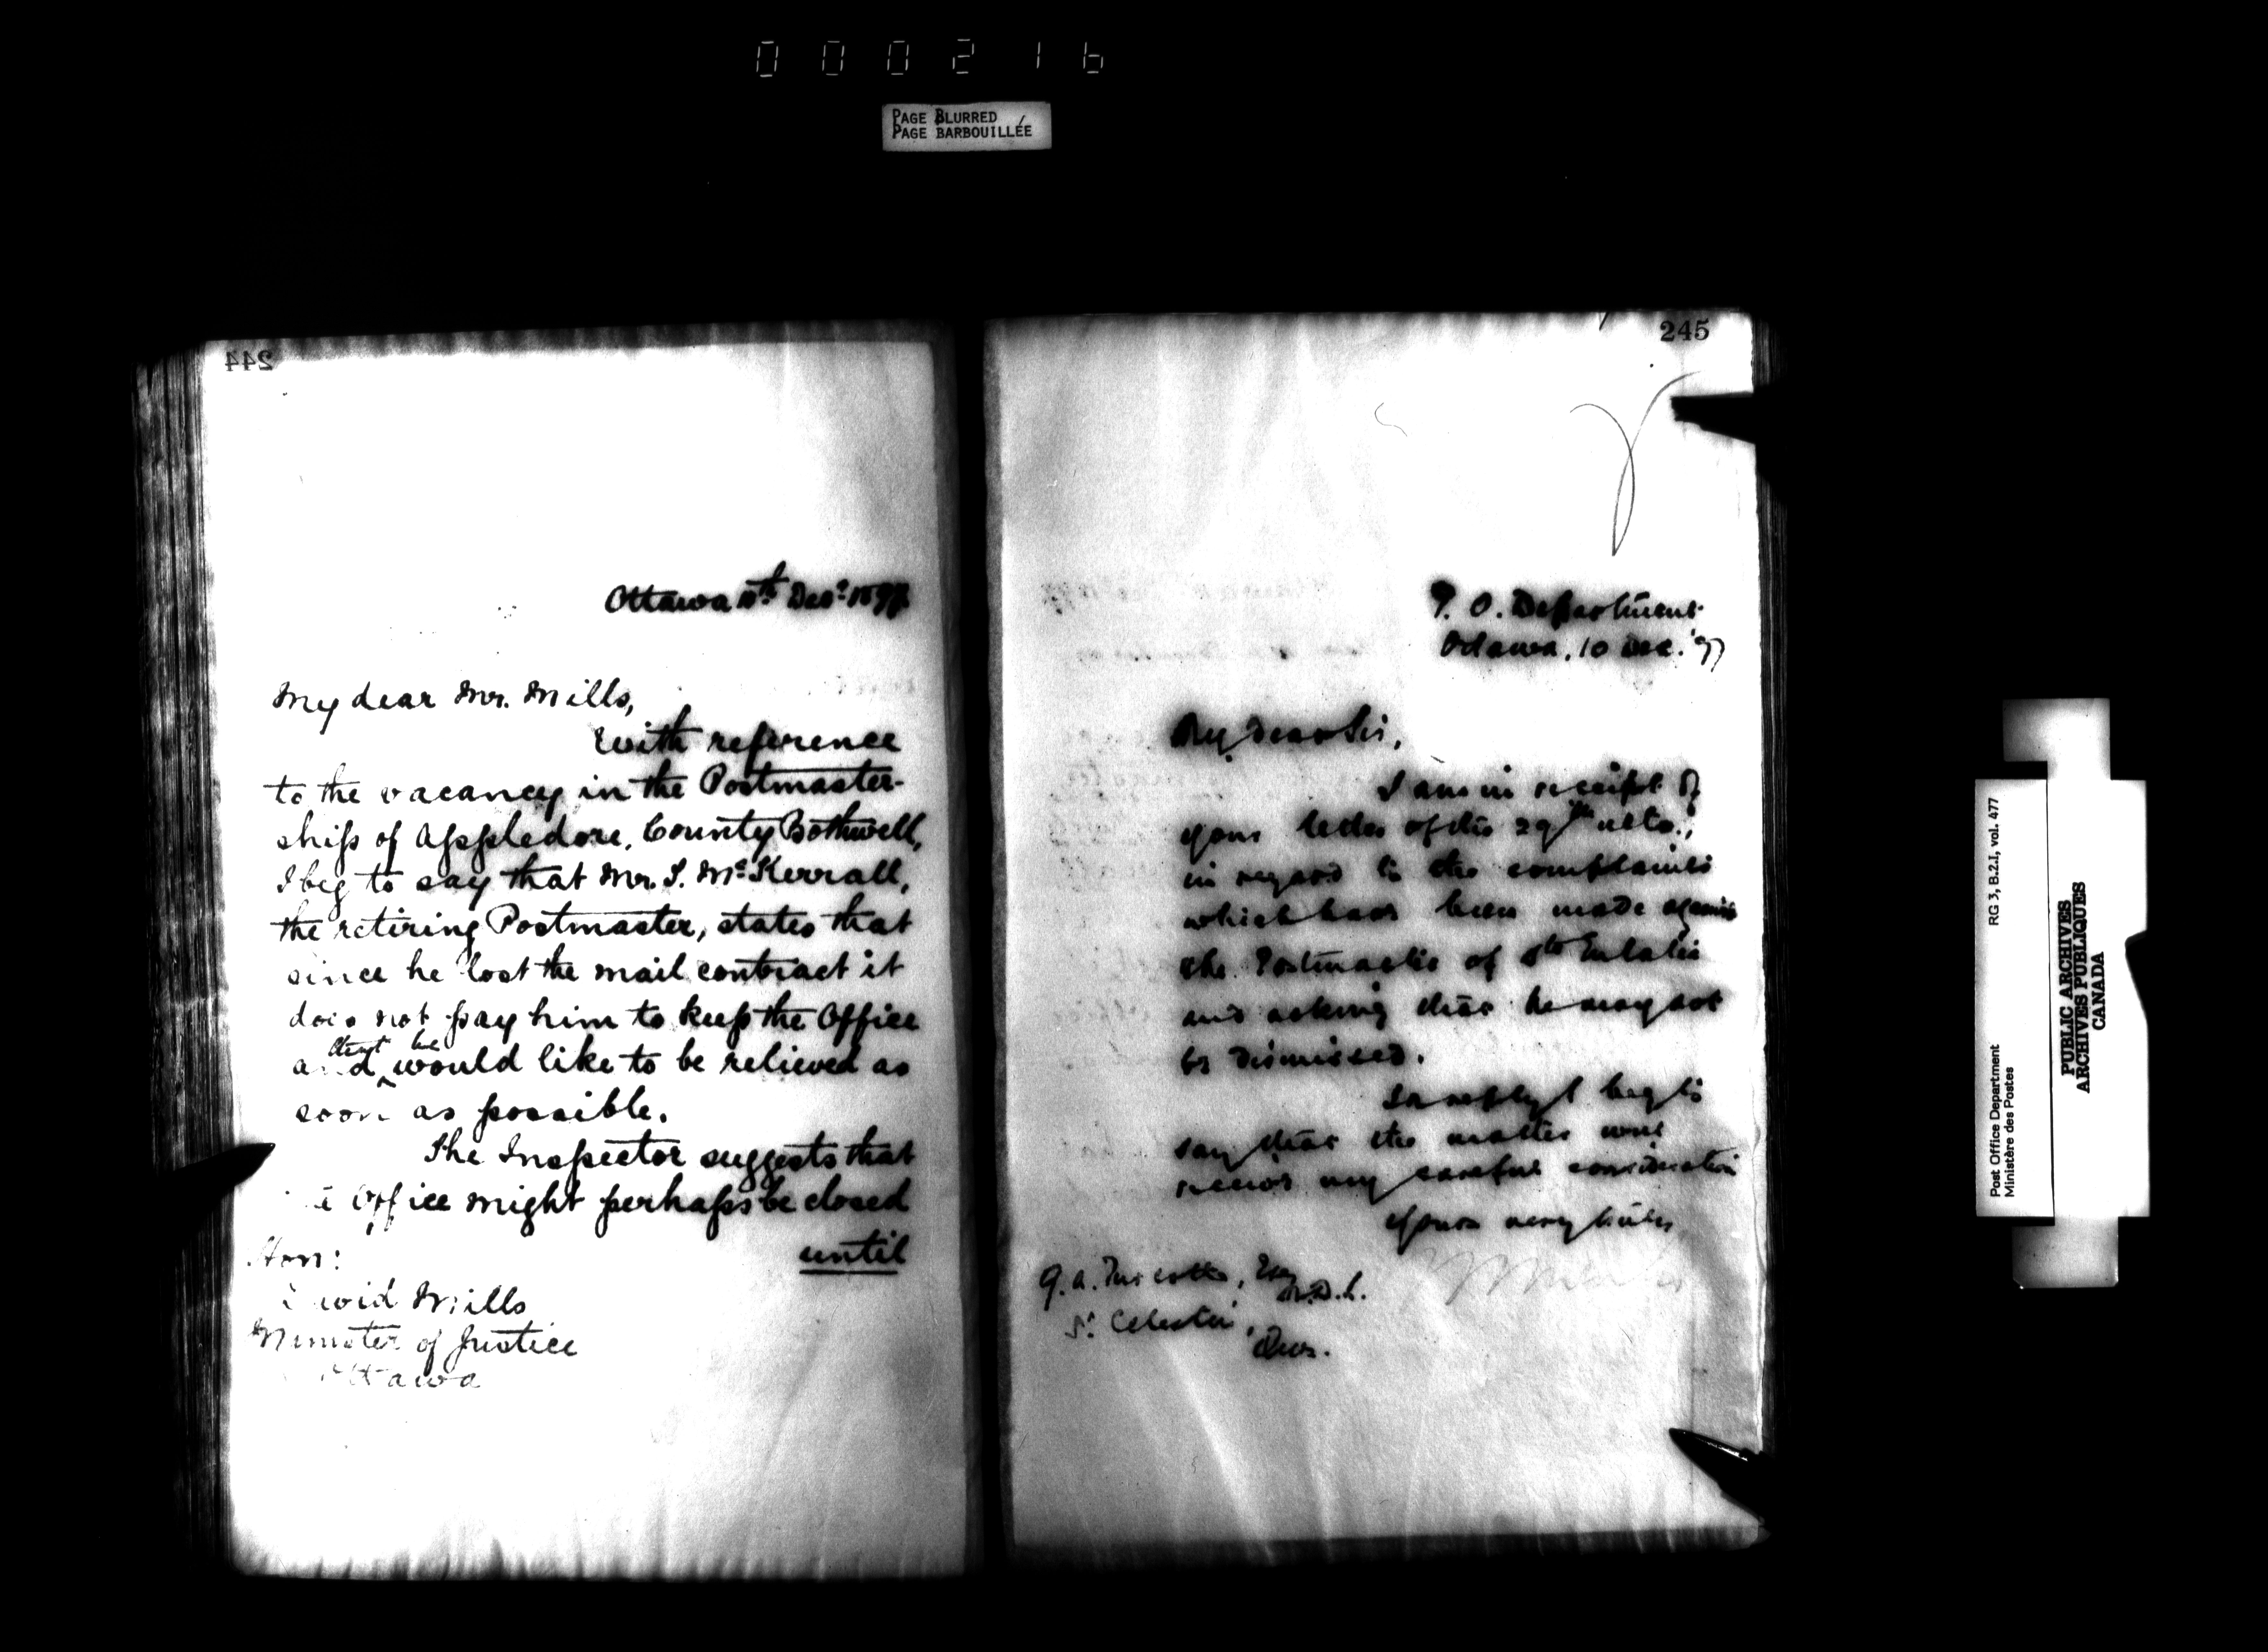 000216
PAGE BLURRED
PAGE BARBOUILLÉE
244
Ottawa 10th Decr. 1897
My dear Mr. Mills,
With reference
to the vacancy in the Postmaster-
ship of Appledore, County Bothwell,
I beg to say that Mr. S. McKerrall,
the retiring Postmaster, states that
since he lost the mail contract it
does not pay him to keep the Office
and that he would like to be relieved as
soon as possible.
The Inspector suggests that
Office might perhaps be closed
until
Hon:
David Mills
Minister of Justice
Ottawa
245
P. O. Department
Ottawa, 10 Dec. '97
My dear Sir,
I am in receipt of
your letter of the 29th ulto.,
in regard to the complaints
which have been made against
the Postmaster of Ste Eulalie
and asking that he may not
be dismissed.
In reply I beg to
say that the matter will
receive my careful consideration
Yours very truly
G. A. Turcotte, Esq
St. Celestin,
Que.
Post Office Department
Ministère des Postes
RG 3, B.2.I, vol. 477
PUBLIC ARCHIVES
ARCHIVES PUBLIQUES
CANADA